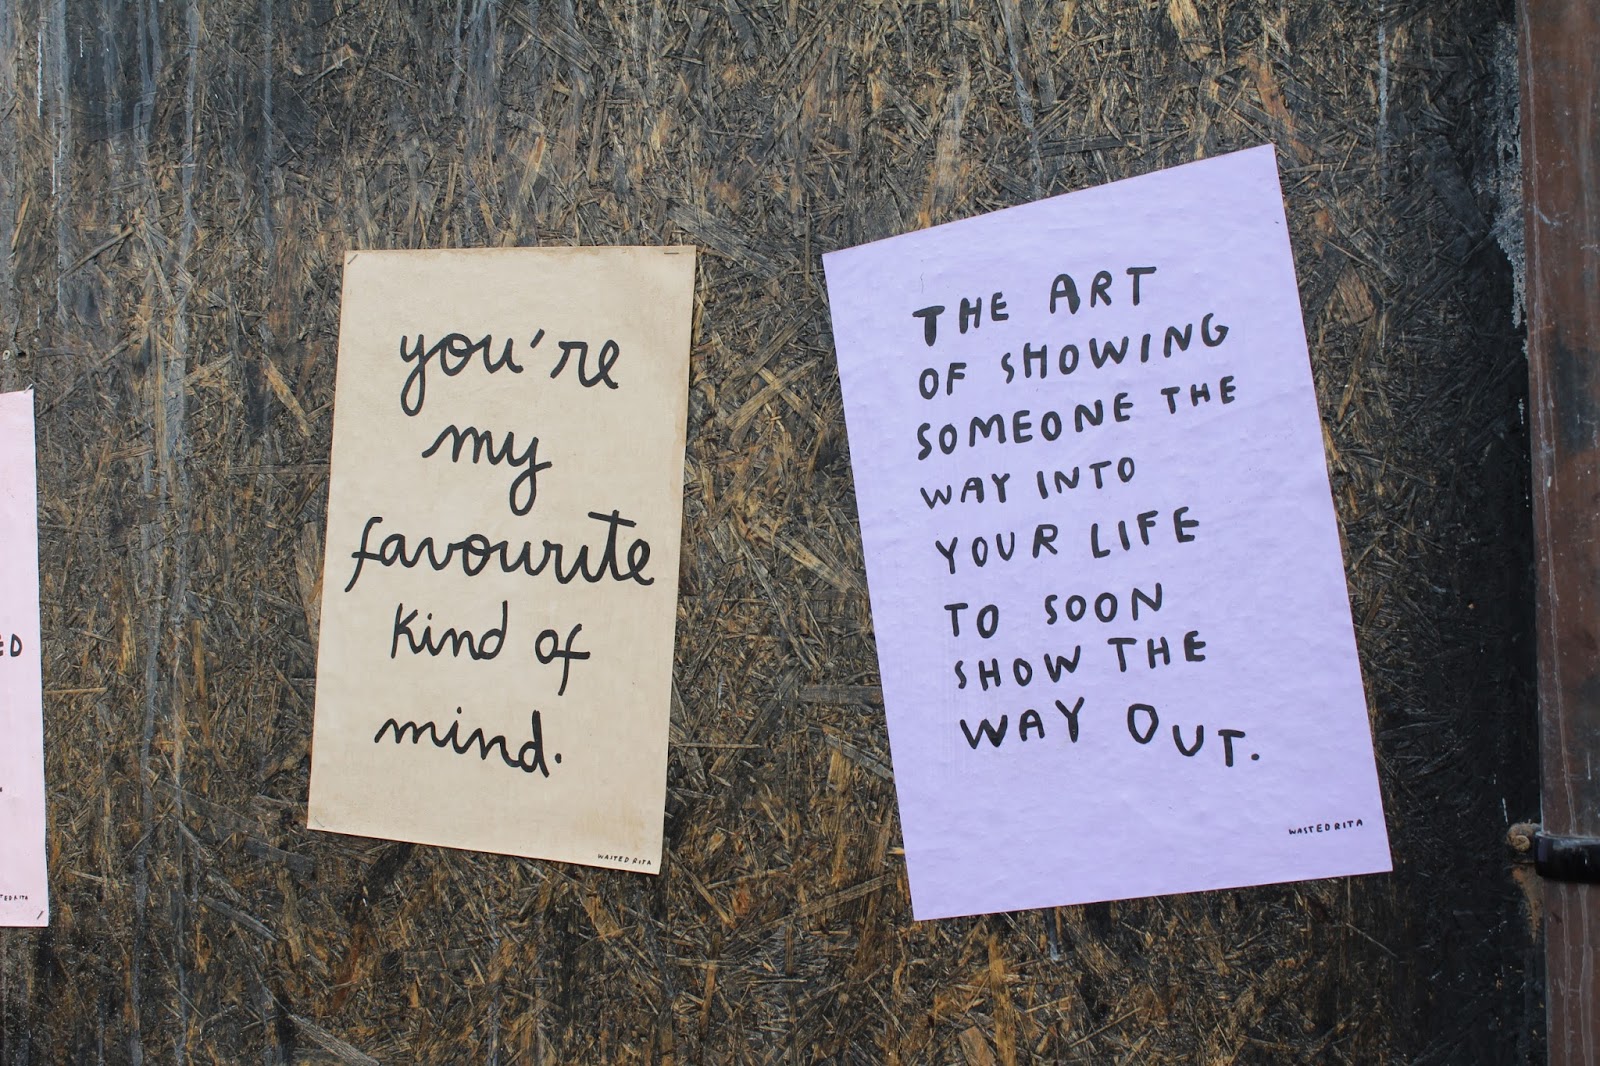 you're
my
favourite
kind of
mind.
WASTED RITA
THE ART
OF SHOWING
SOMEONE THE
WAY INTO
YOUR LIFE
TO SOON
SHOW THE
WAY OUT.
WASTED RITA